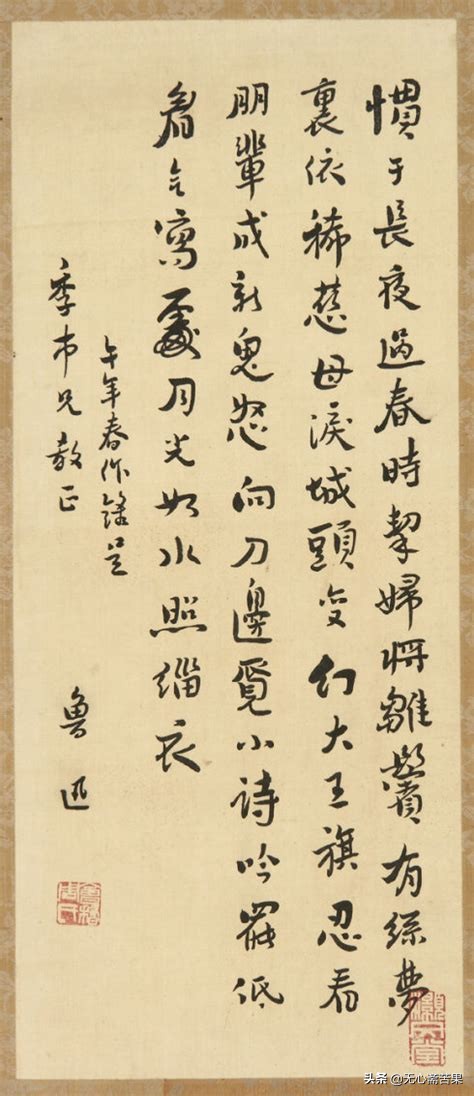 慣于長夜過春時挈婦將雛鬢有絲夢
裏依稀慈母淚城頭變幻大王旗忍看
朋輩成新鬼怒向刀邊覓小詩吟罷低
眉無寫處月光如水照緇衣
午年春作錄呈
季市兄教正
魯迅
头条 @无心斋苦果